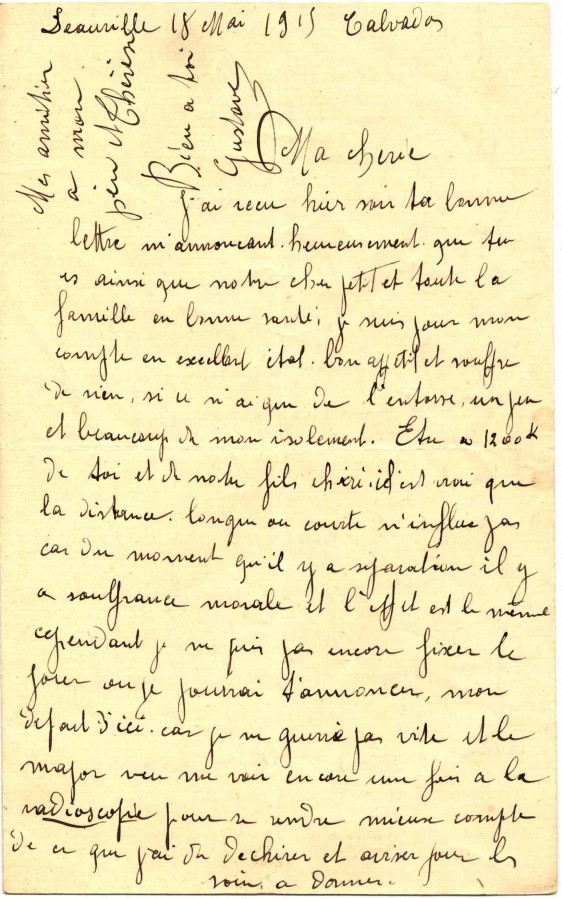 Deauville 18 Mai 1915 Calvados
Mes amitiés
a mon
père et Thérèse
Bien a toi
Gustave
Ma cherie
j'ai recu hier soir ta bonne
lettre m'annoncant. heureusement. que tu
es ainsi que notre cher petit et toute la
famille en bonne santé; je suis pour mon
compte en excellent état. bon appétit et souffre
de rien, si ce n'ai que de l'entorse, un peu
et beaucoup de mon isolement. Etre a 1200 k
de toi et de notre fils chéri. il est vrai que
la distance. longue ou courte n'influe pas
car du moment qu'il y a séparation il y
a souffrance morale et l'effet est le même
cependant je ne puis pas encore fixer le
jour ou je pourrai t'annoncer, mon
depart d'ici. car je ne gueris pas vite et le
major veu me voir encore une fois a la
radioscopie pour se rendre mieux compte
de ce que j'ai de dechirer et aviser pour les
soins a donner.